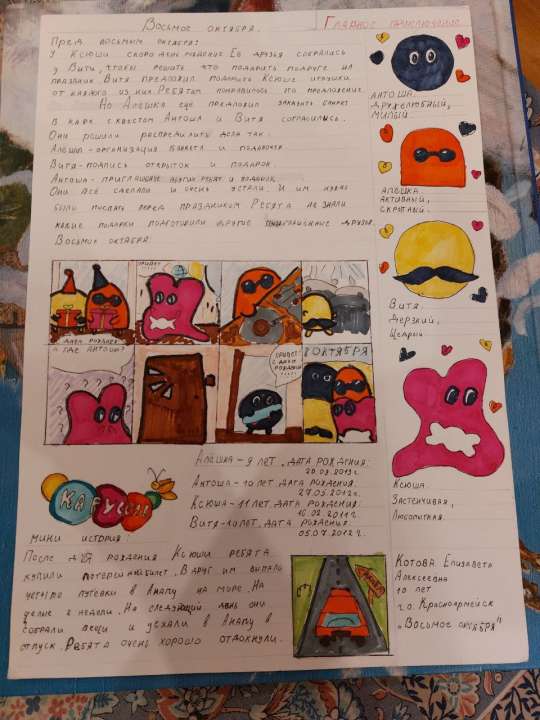 Восьмое октября.
Главное приключение
Пред восьмым октября:
У Ксюши скоро день рождения. Её друзья собрались
у Вити, чтобы решить что подарить подруге на
праздник. Витя предложил подарить Ксюше игрушки,
от каждого из них. Ребятам понравилось то предложение.
Но Алёшка ещё предложил заказать банкет
в кафе с квестом. Антоша и Витя согласились.
Они решили распределить дела так:
Алёшка - организация банкета и подарочек
Витя - подпись открыток и подарок.
Антоша - приглашение других ребят и подарок.
Они всё сделали и очень устали. И им нужно
было поспать перед праздником. Ребята не знали
какие подарки подготовили другие приглашённые друзья.
Восьмое октября:
Антоша.
Дружелюбный,
милый.
Алёшка.
Активный,
скрытный.
Витя.
Дерзкий,
щедрый
Ксюша.
Застенчивая,
любопытная.
Привет
День рождения
А где Антоша?
Привет!
С днём
рождения!
8 октября
Алёшка - 9 лет. Дата рождения:
Антоша - 10 лет. Дата рождения:
27.05.2012г.
Ксюша - 11 лет. Дата рождения:
16.02.2011г.
Витя - 10 лет. Дата рождения:
05.07.2012г.
Карусель
Мини история:
После дня рождения Ксюши ребята
купили лотерейный билет. Вдруг им выпало
четыре путёвки в Анапу на море. На
целые 2 недели. На следующий день они
собрали вещи и уехали в Анапу в
отпуск. Ребята очень хорошо отдохнули.
Анапа
Котова Елизавета
Алексеевна
10 лет
г.о. Красноармейск
"Восьмое октября"